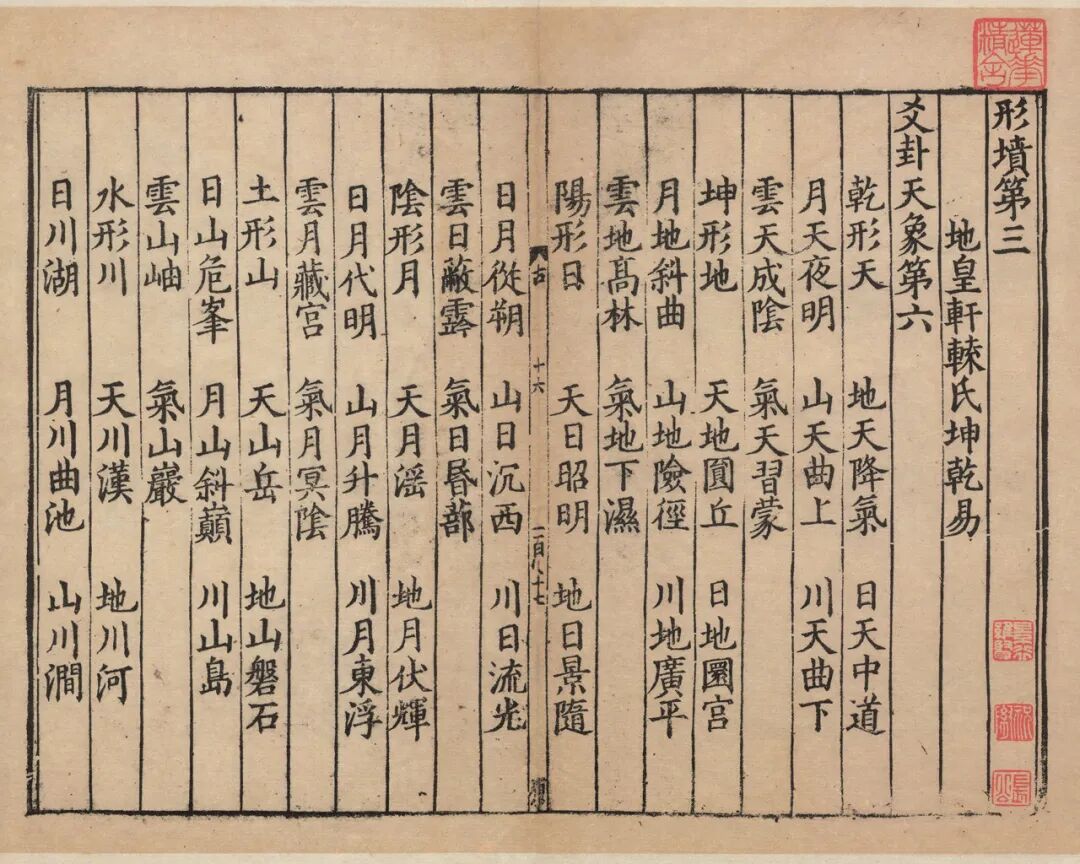 形墳第三
地皇軒轅氏坤乾易
爻卦天象第六
乾形天 地天降氣 日天中道
月天夜明 山天曲上 川天曲下
雲天成陰 氣天習蒙
坤形地 天地圓丘 日地圜宮
月地斜曲 山地險徑 川地廣平
雲地高林 氣地下濕
陽形日 天日昭明 地日景隨
古 十六 一百八十七
日月從朔 山日沉西 川日流光
雲日蔽露 氣日昬蔀
陰形月 天月滛 地月伏輝
日月代明 山月升騰 川月東浮
雲月藏宮 氣月冥陰
土形山 天山岳 地山磐石
日山危峯 月山斜巔 川山島
雲山岫 氣山巖
水形川 天川漢 地川河
日川湖 月川曲池 山川澗
蓮華精舍